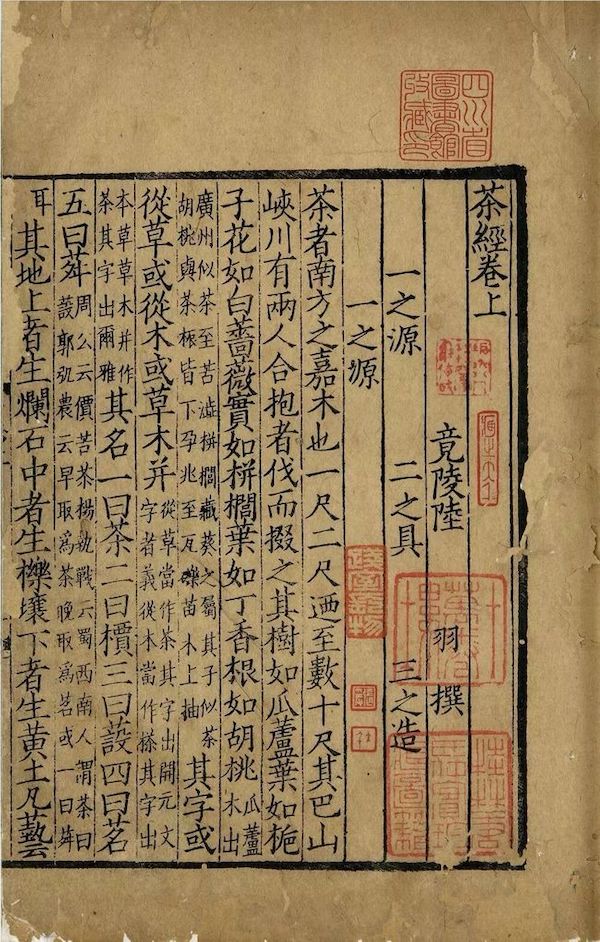 四川省
圖書館
收藏印
茶經卷上
竟陵陸　羽　撰
一之源　二之具　三之造
一之源
茶者南方之嘉木也一尺二尺迺至數十尺其巴山
峽川有兩人合抱者伐而掇之其樹如瓜蘆葉如梔
子花如白薔薇實如栟櫚葉如丁香根如胡桃瓜蘆木出
廣州似茶至苦澁栟櫚藏葵之屬其子似茶胡桃與茶根皆下孕兆至瓦礫苗木上抽其字或
從草或從木或草木并從草當作茶其字出開元文字者義從木當作搽其字出
本草草木并作茶其字出爾雅其名一曰茶二曰檟三曰設四曰茗
五曰荈周公云價苦茶楊執戟云蜀西南人謂茶曰蔎郭弘農云早取爲茶晚取爲茗或一曰荈
耳其地上者生爛石中者生櫟壤下者生黃土凡藝